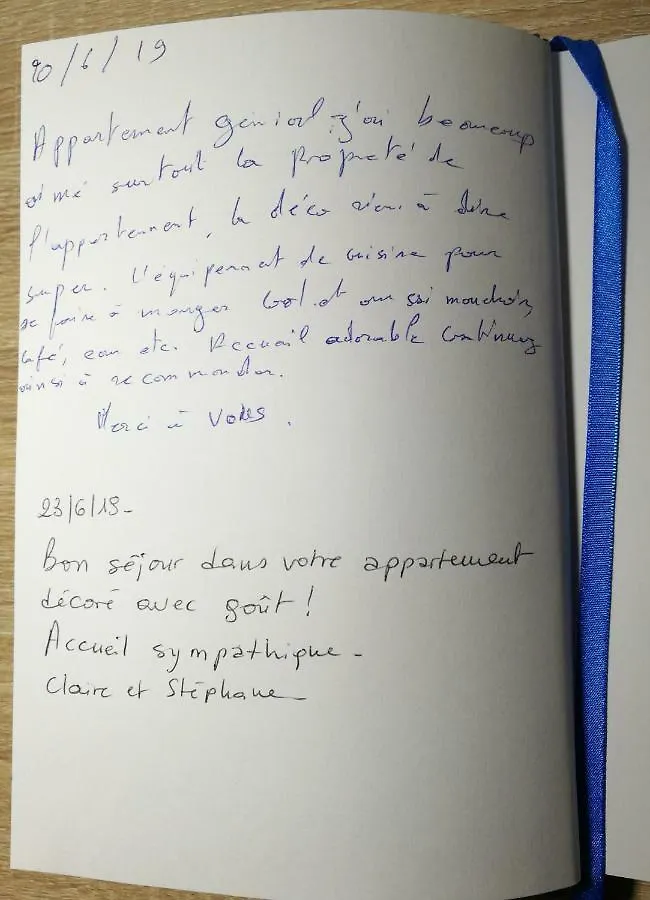 20/6/19
Appartement génial j'ai beaucoup
aimé surtout la propreté de
l'appartement, la déco rien à dire
super. L'équipement de cuisine pour
se faire à manger
café, eau etc. Accueil adorable Continuez
ainsi à recommander.
Merci à vous.
23/6/19-
Bon séjour dans votre appartement
décoré avec goût !
Accueil sympathique -
Claire et Stéphane